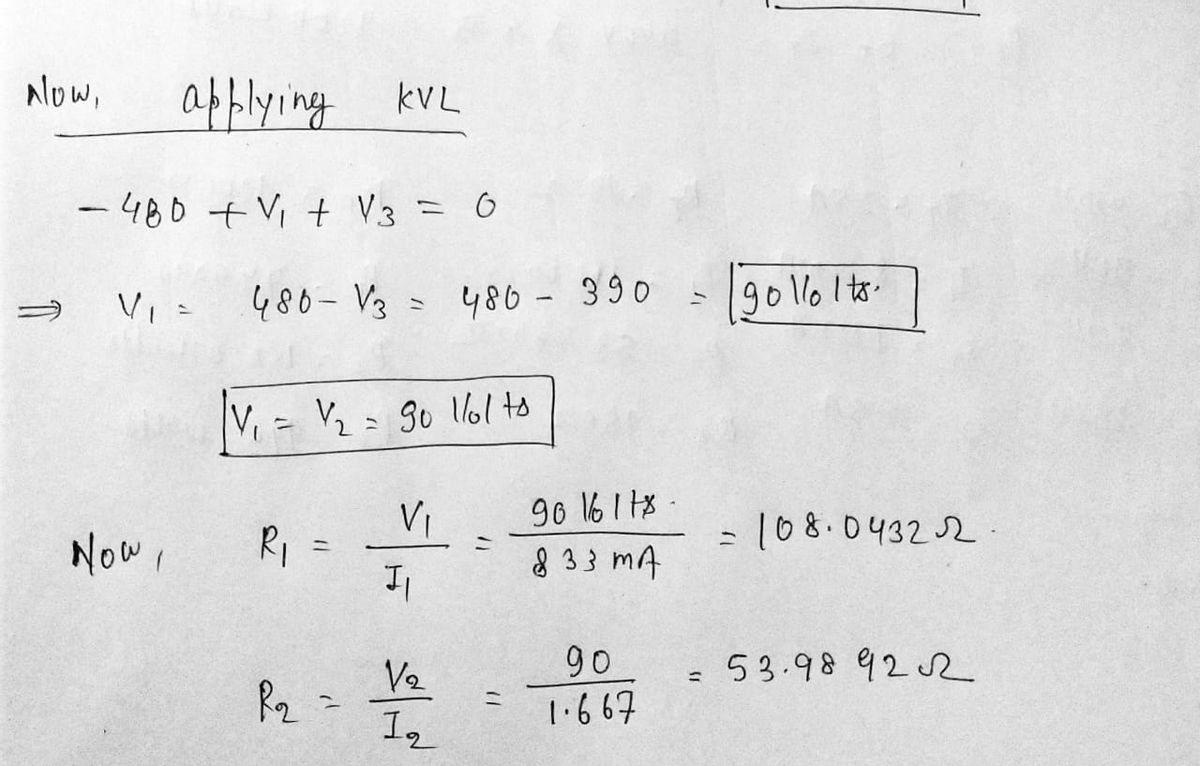 Now, applying KVL
- 480 + V₁ + V₃ = 0
⇒ V₁ = 480 - V₃ = 480 - 390 = 90 Volts.
V₁ = V₂ = 90 Volts
Now, R₁ = V₁ / I₁ = 90 Volts. / 833 mA = 108.0432 Ω.
R₂ = V₂ / I₂ = 90 / 1.667 = 53.9892 Ω